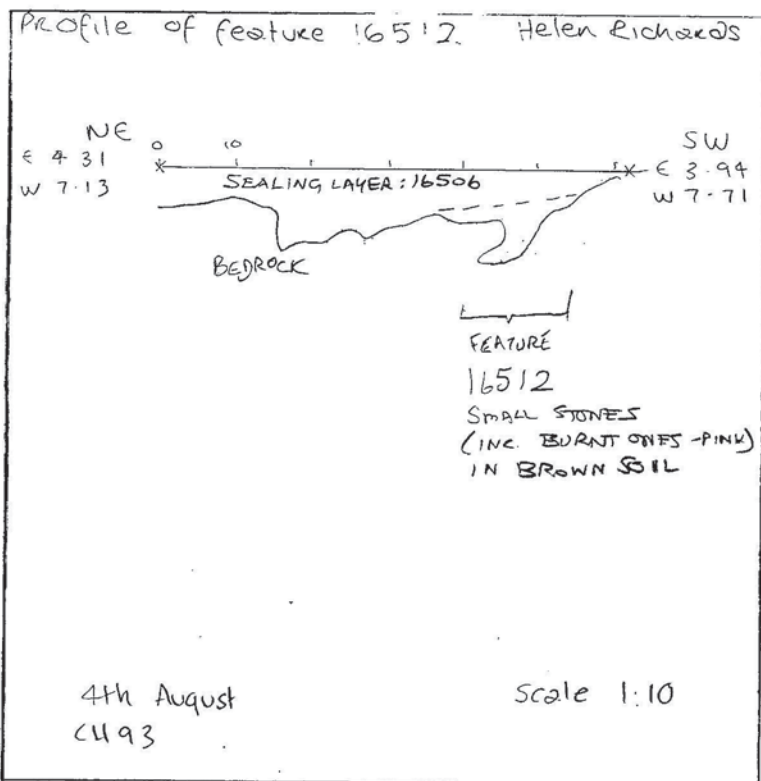 Profile of feature 16512. Helen Richards
NE
SW
0 10
E 4 31
E 3.94
W 7.13
W 7.71
SEALING LAYER: 16506
BEDROCK
FEATURE
16512
SMALL STONES
(INC. BURNT ONES - PINK)
IN BROWN SOIL
4th August
Scale 1:10
CH93